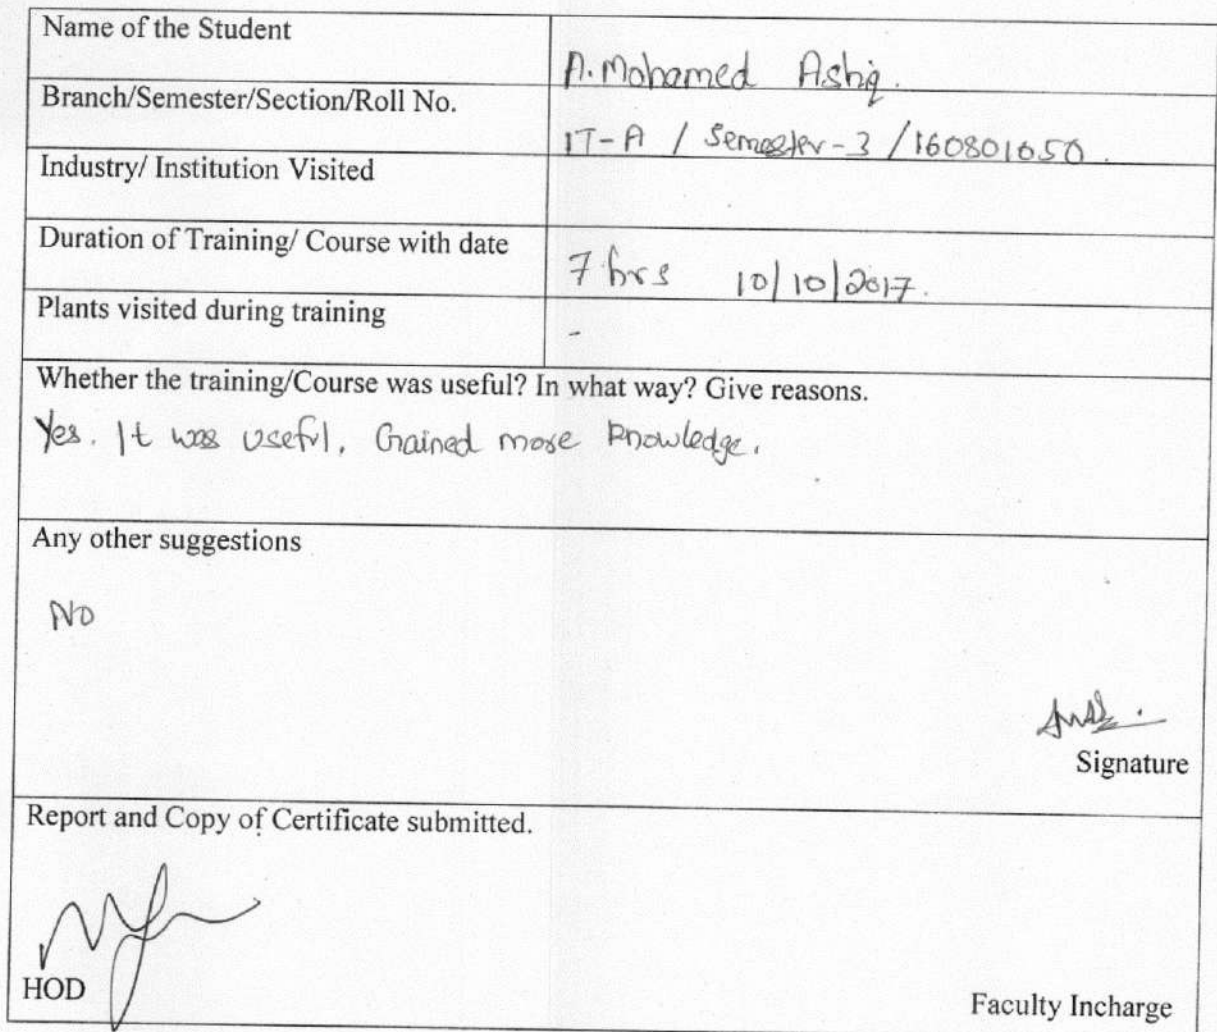 Name of the Student
A. Mohamed Ashiq.
Branch/Semester/Section/Roll No.
IT-A / Semester-3 / 160801050.
Industry/ Institution Visited
Duration of Training/ Course with date
7 hrs 10/10/2017.
Plants visited during training
-
Whether the training/Course was useful? In what way? Give reasons.
Yes. It was useful. Gained more knowledge.
Any other suggestions
NO
Signature
Report and Copy of Certificate submitted.
HOD
Faculty Incharge